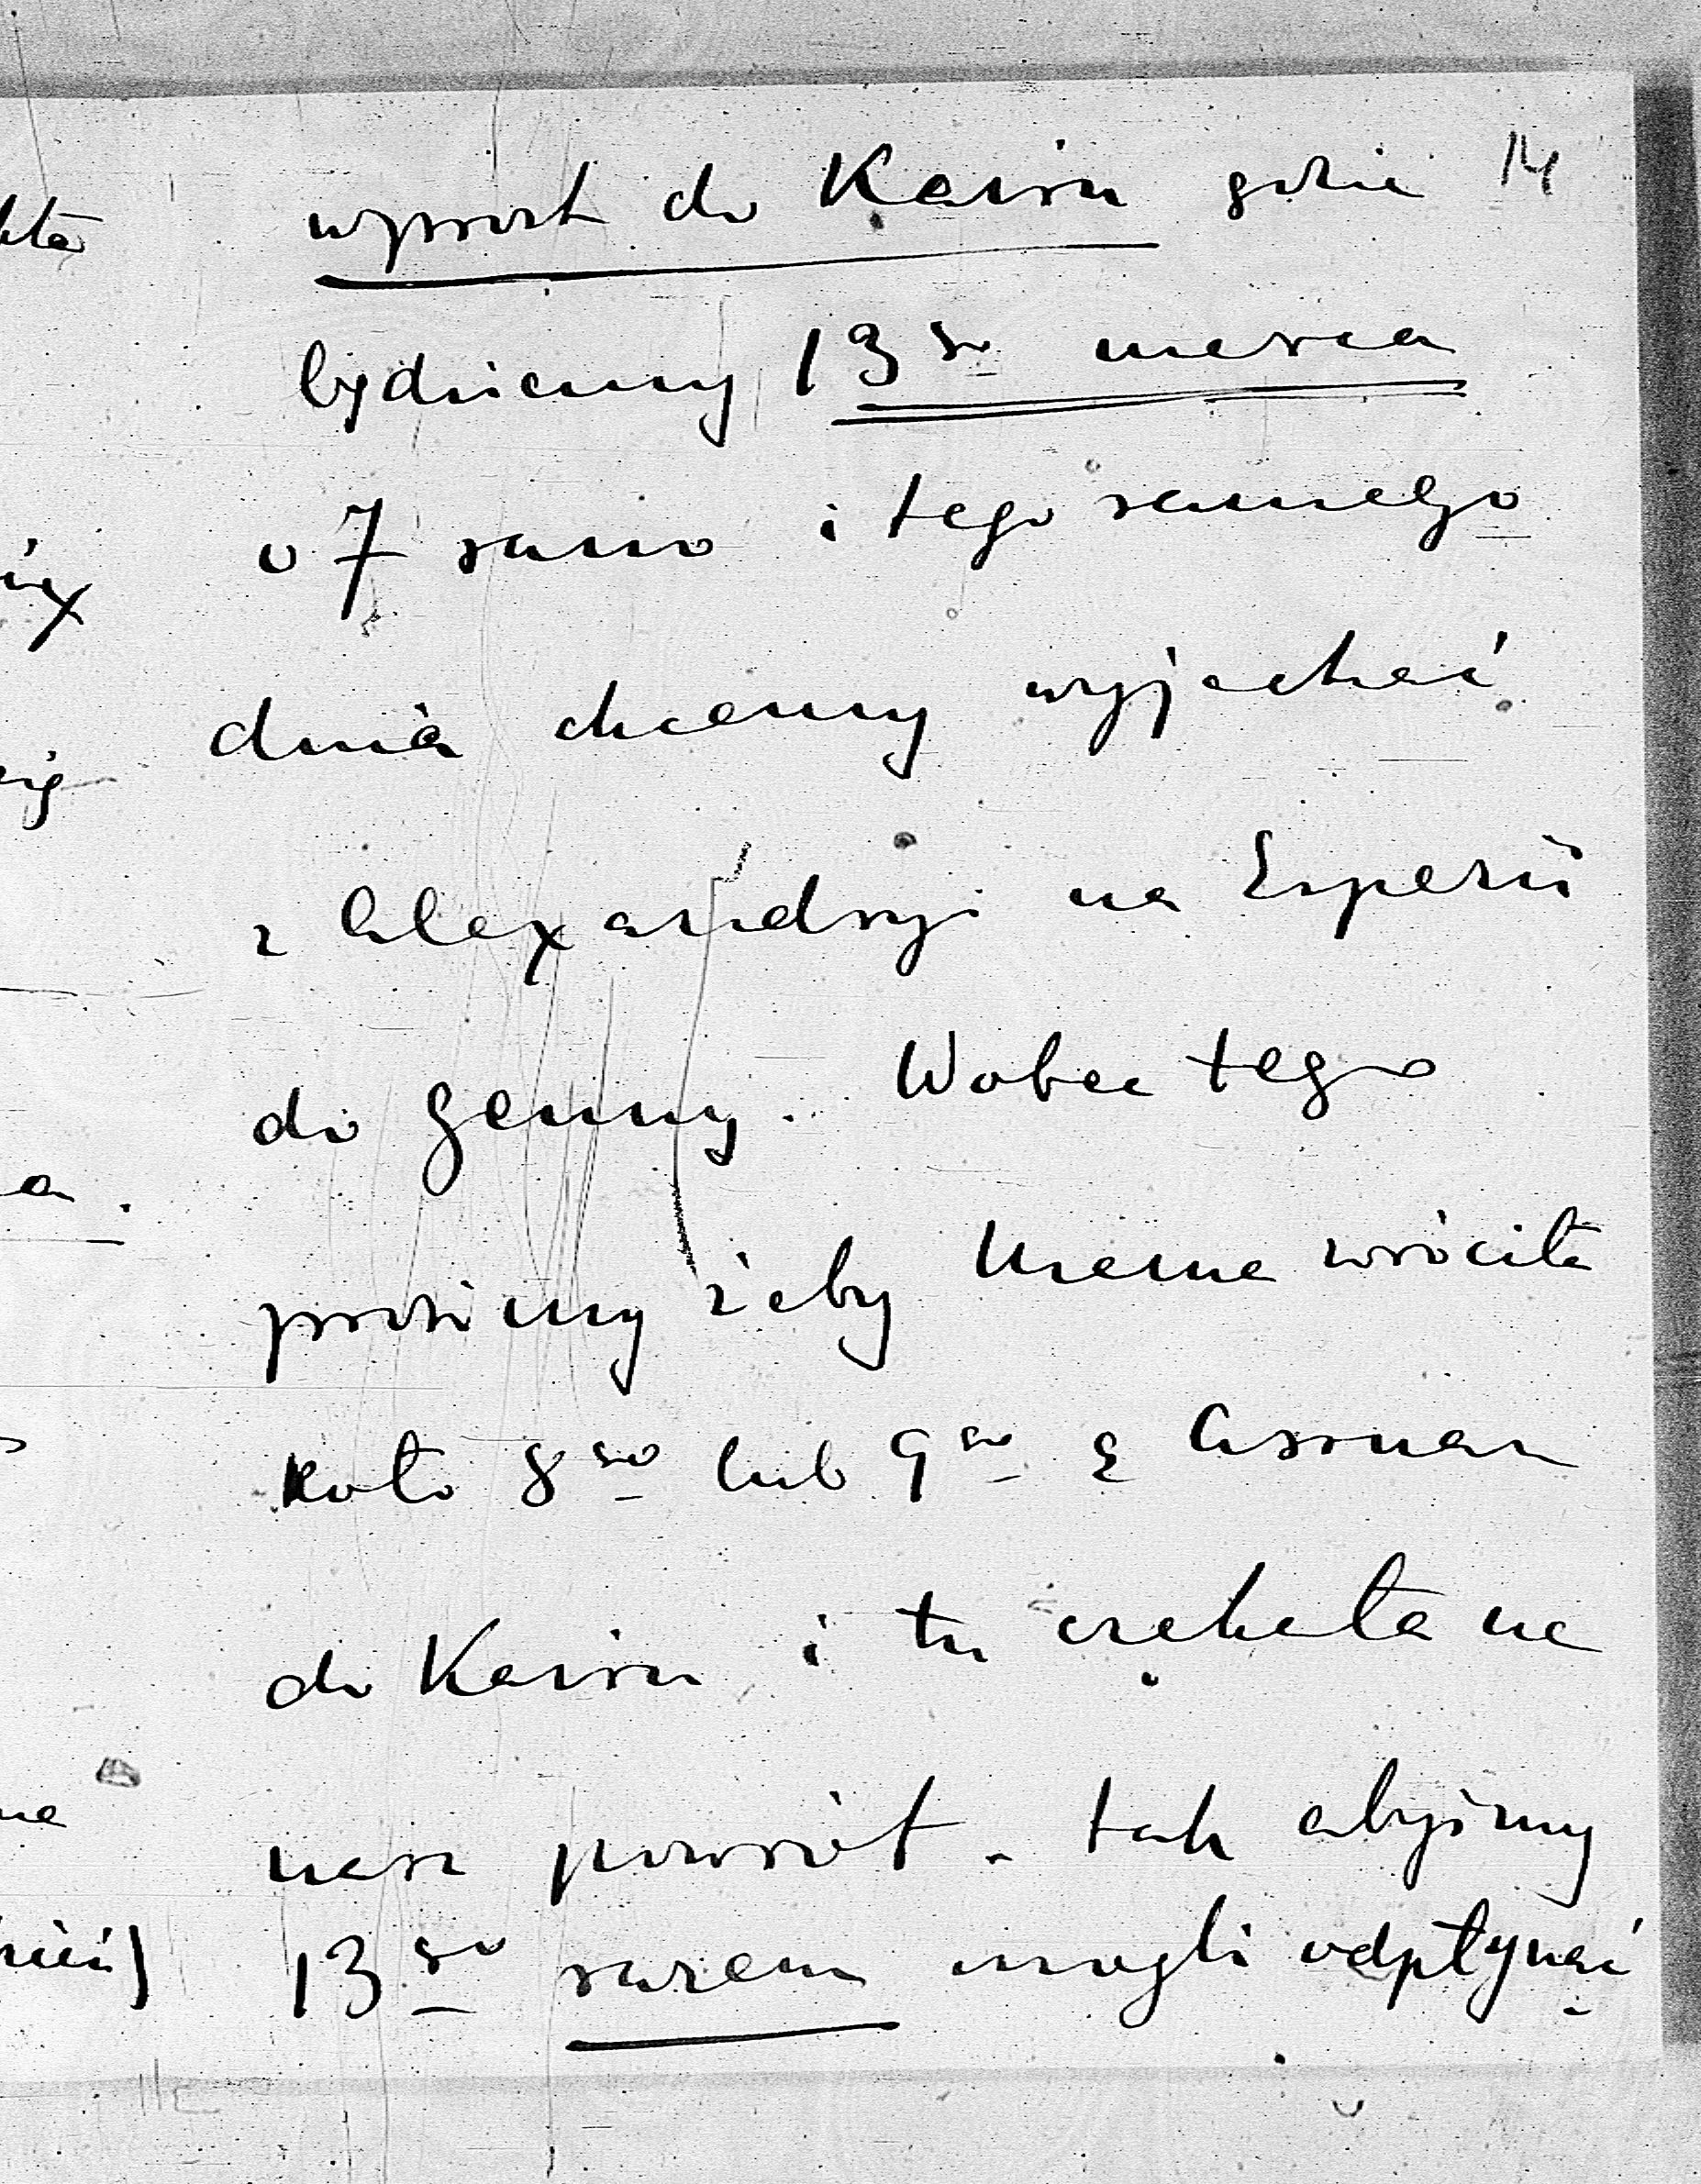 14
wprost do Kairu gdzie
będziemy 13go marca
o 7 rano i tego samego
dnia chcemy wyjechać
z Alexandryi na Esperii
do Genuy. Wobec tego
prosimy żeby Mama wróciła
koło 8go lub 9go z Assuan
do Kairu i tu czekała na
nasz powrót - tak abyśmy
13go razem mogli odpłynąć